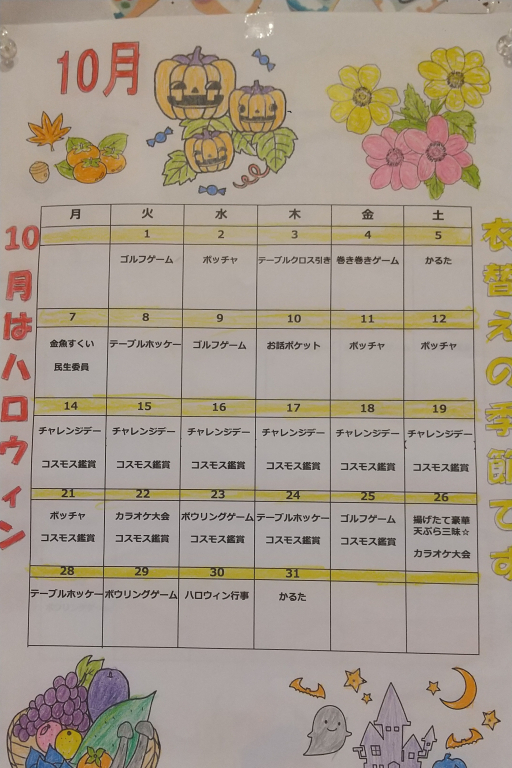 10月
10月はハロウィン
衣替えの季節です
月 火 水 木 金 土
1 2 3 4 5
ゴルフゲーム ボッチャ テーブルクロス引き 巻き巻きゲーム かるた
7 8 9 10 11 12
金魚すくい テーブルホッケー ゴルフゲーム お話ポケット ボッチャ ボッチャ
民生委員
14 15 16 17 18 19
チャレンジデー チャレンジデー チャレンジデー チャレンジデー チャレンジデー チャレンジデー
コスモス鑑賞 コスモス鑑賞 コスモス鑑賞 コスモス鑑賞 コスモス鑑賞 コスモス鑑賞
21 22 23 24 25 26
ボッチャ カラオケ大会 ボウリングゲーム テーブルホッケー ゴルフゲーム 揚げたて豪華
天ぷら三昧☆
コスモス鑑賞 コスモス鑑賞 コスモス鑑賞 コスモス鑑賞 コスモス鑑賞 カラオケ大会
28 29 30 31
テーブルホッケー ボウリングゲーム ハロウィン行事 かるた